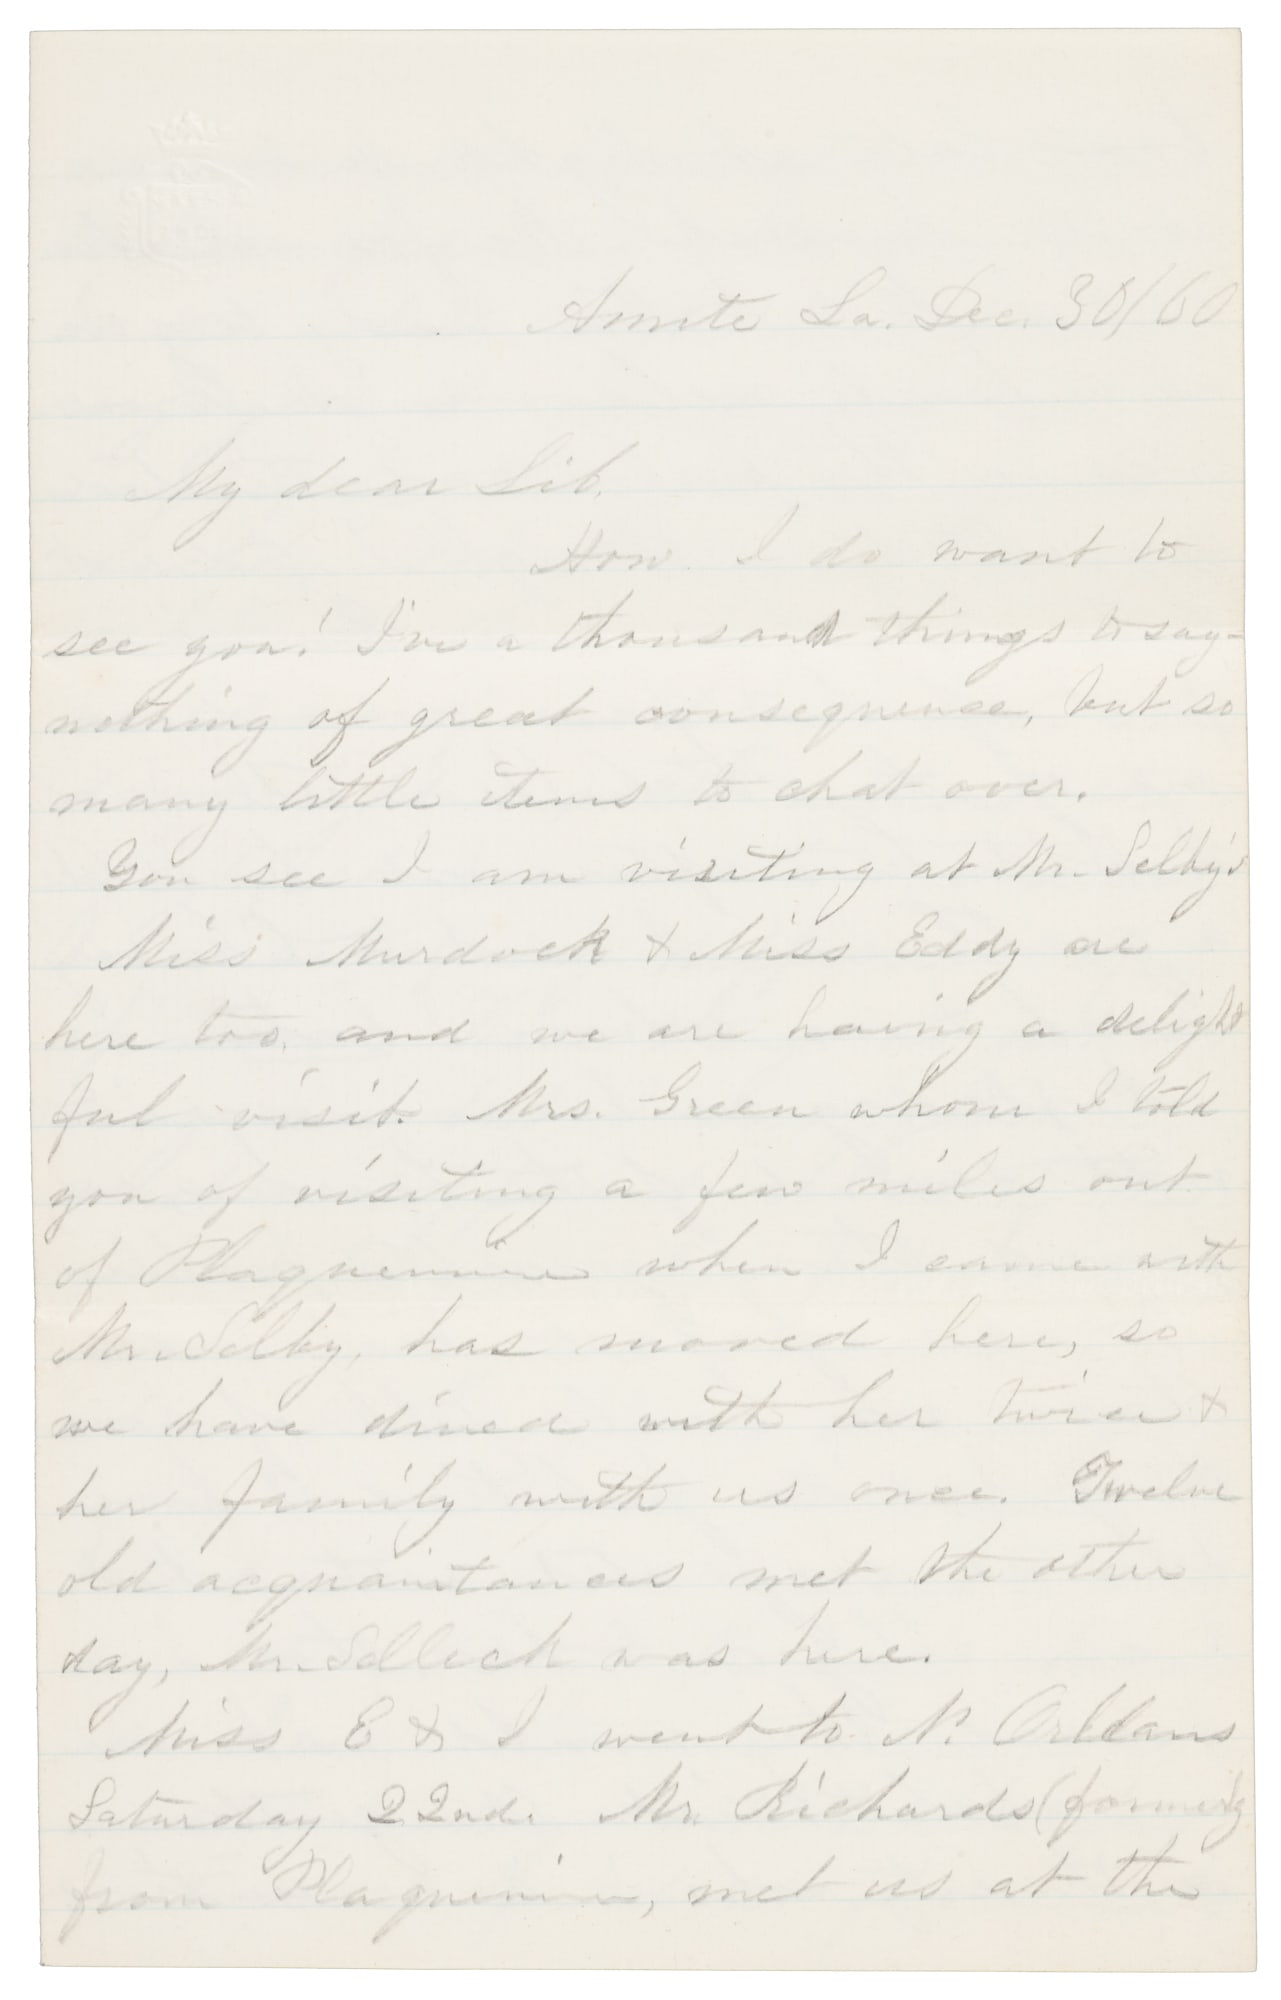 Amite La. Dec. 30/60
My dear Lib.
How I do want to
see you! I've a thousand things to say-
nothing of great consequense, but so
many little items to chat over.
You see I am visiting at Mr. Selby's
Miss Murdock & Miss Eddy are
here too, and we are having a delight
ful visit. Mrs. Green whom I told
you of visiting a few miles out
of Plaquemine when I came with
Mr. Selby, has moved here, so
we have dined with her twice &
her family with us once. Twelve
old acquaintances met the other
day, Mr. Selleck was here.
Miss E & I went to N. Orleans
Saturday 22nd. Mr. Richards (formerly
from Plaquemine, met us at the